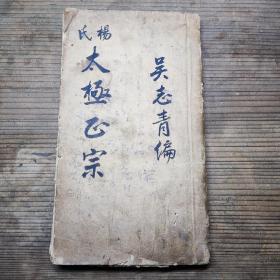 楊氏
太極正宗
吴志青编